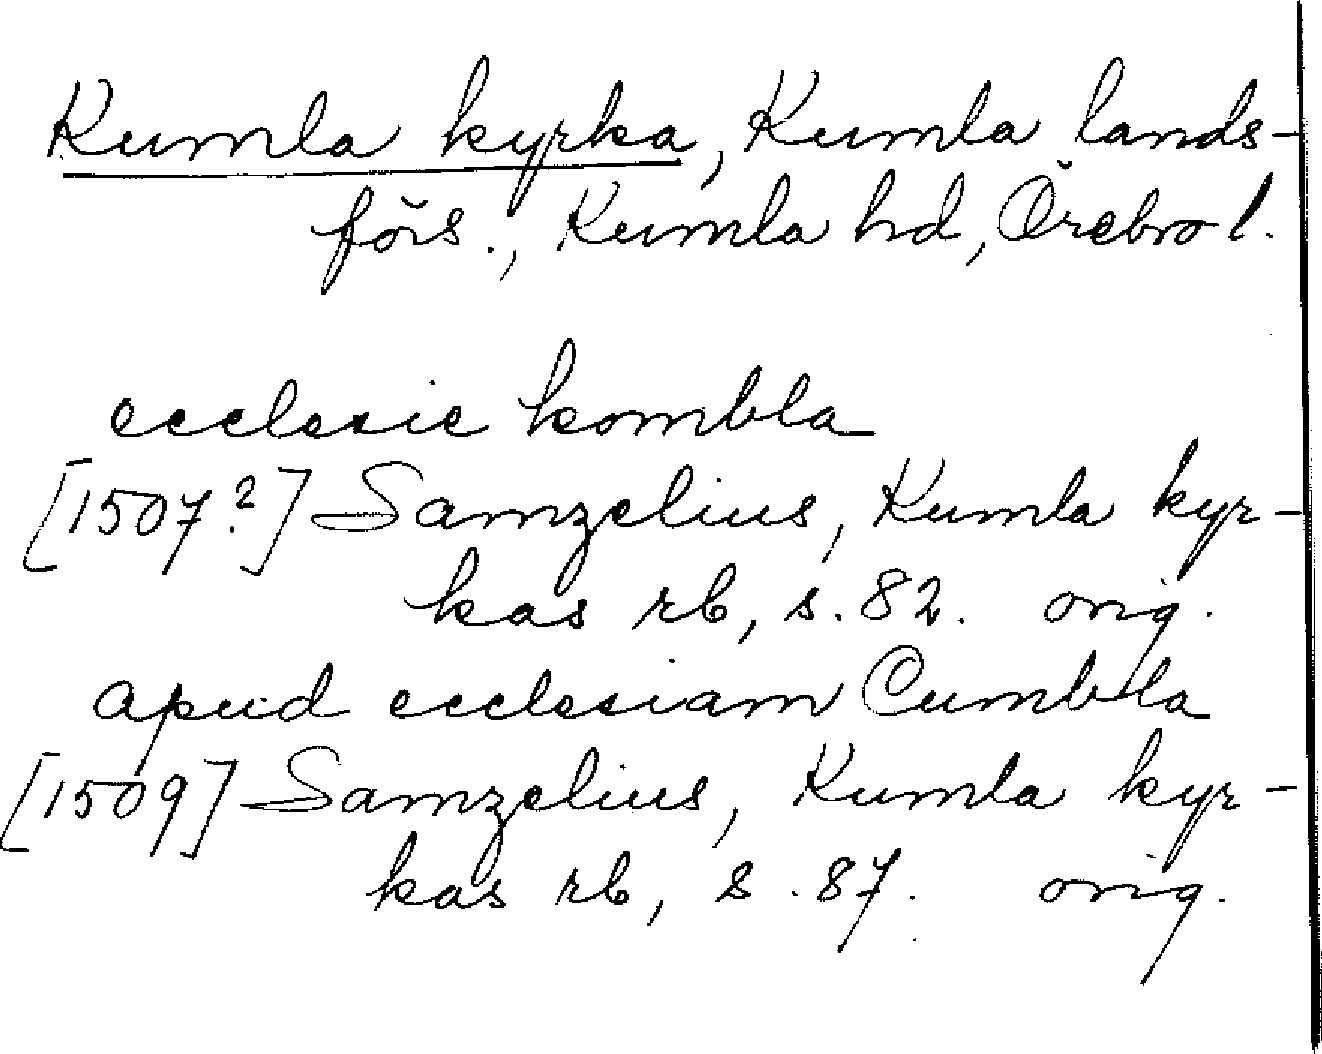 Kumla kyrka, Kumla lands-
förs., Kumla hd, Örebro l.
ecclesie kombla
[1507?] Samzelius, Kumla kyr-
kas rb, s. 82. orig.
apud ecclesiam Cumbla
[1509] Samzelius, Kumla kyr-
kas rb, s. 87. orig.